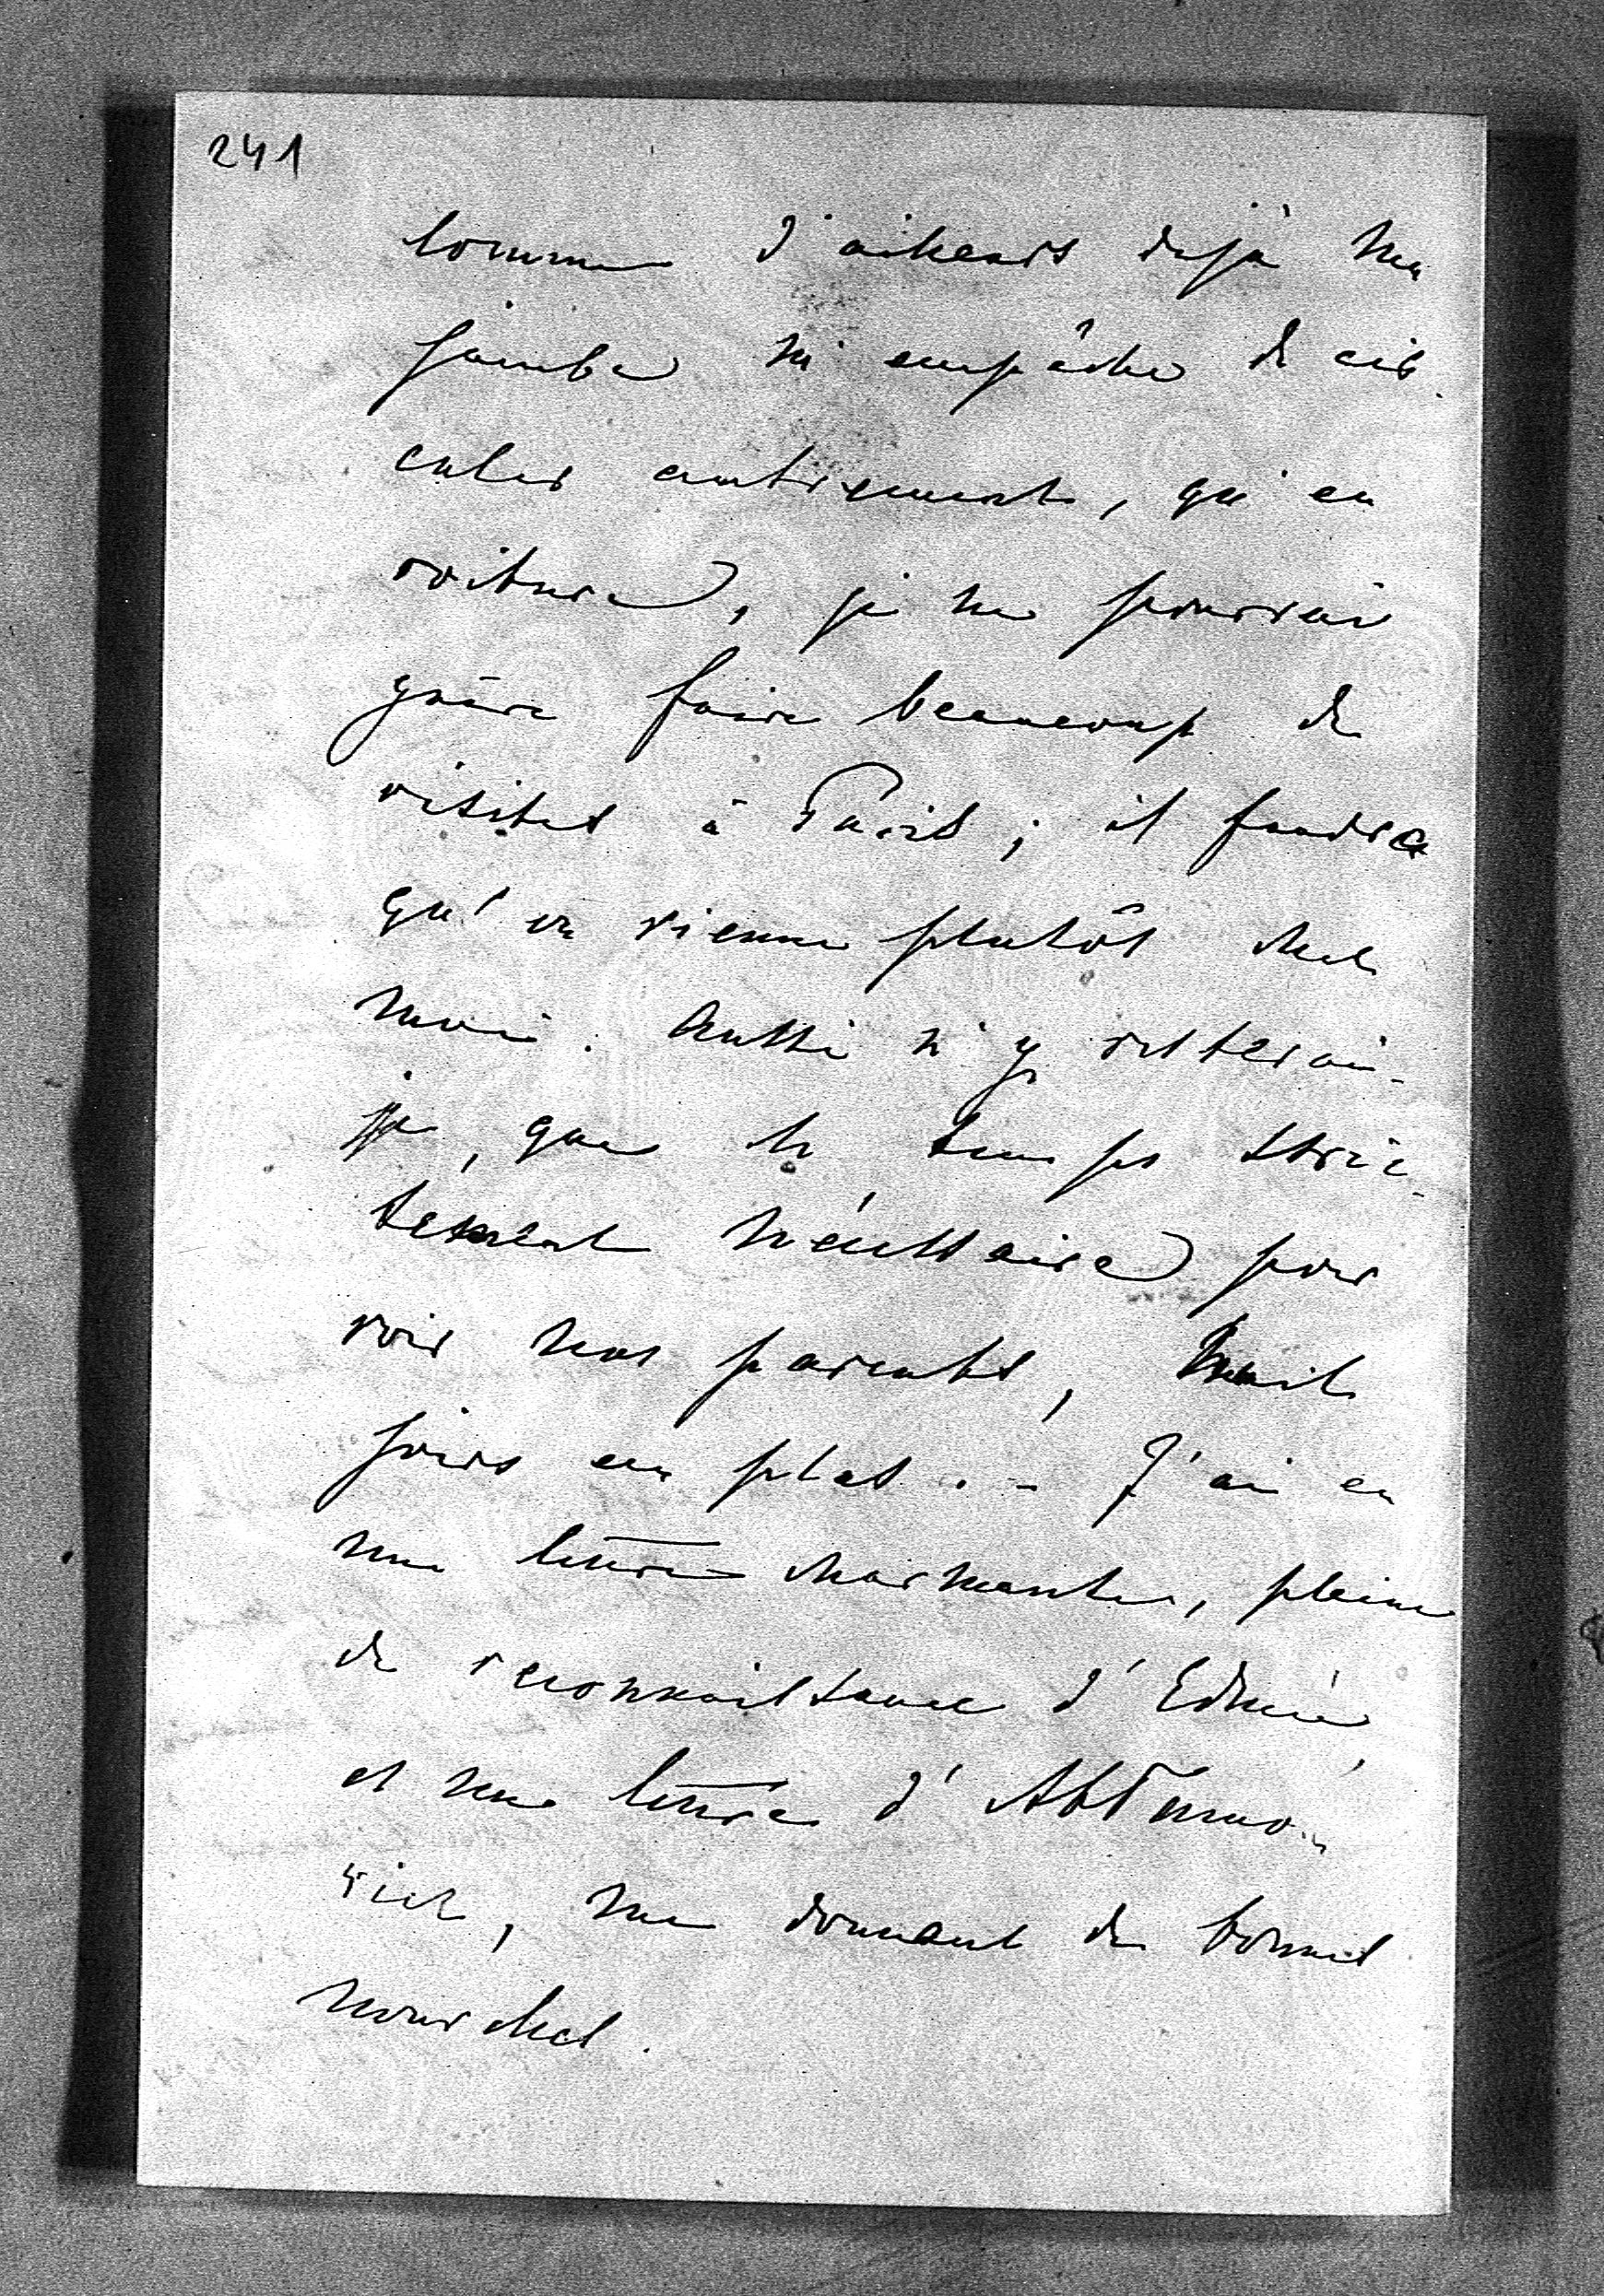 241
Comme d'ailleurs déjà ma
jambe m'empêche de cir-
culer autrement, qu'en
voiture, je ne pourrai
guère faire beaucoup de
visites à Paris ; il faudra
qu'on vienne plutôt chez
moi. Aussi n'y resterai-
je, que le temps stric-
tement nécessaire pour
voir nos parents, huit
jours au plus. - J'ai eu
une lettre charmante, pleine
de reconnaissance d'Edmée,
et une lettre d'
me donnant de bonnes
nouvelles.